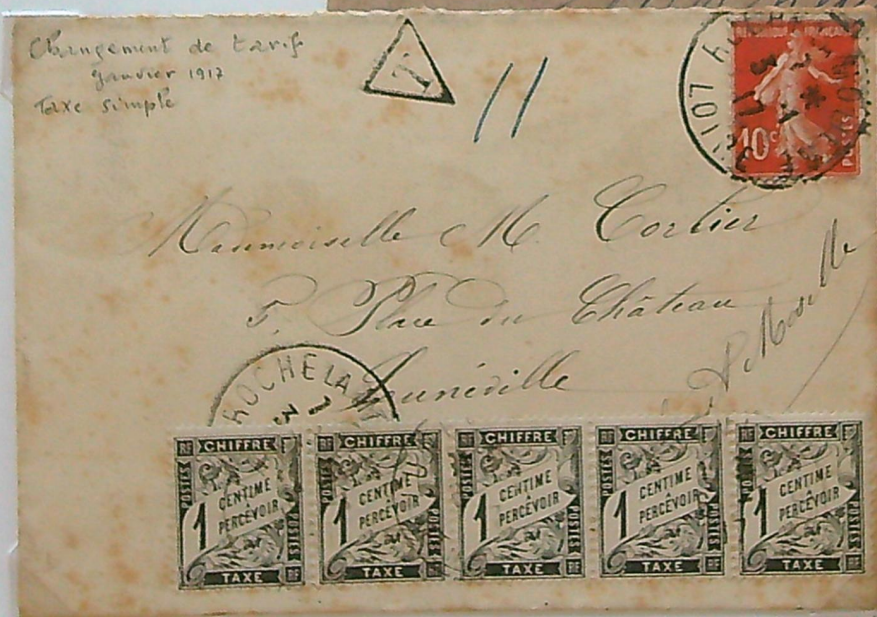 Changement de tarif
Janvier 1917
Taxe simple
T
11
RÉPUBLIQUE FRANÇAISE
10c
POSTES
Mademoiselle M. Cortier
5, Place du Château
Lunéville
Mlle & Moselle
ROCHE LA
CHIFFRE
POSTES
1 CENTIME À PERCEVOIR
POSTES
RF TAXE RF
CHIFFRE
POSTES
1 CENTIME À PERCEVOIR
POSTES
RF TAXE RF
CHIFFRE
POSTES
1 CENTIME À PERCEVOIR
POSTES
RF TAXE RF
CHIFFRE
POSTES
1 CENTIME À PERCEVOIR
POSTES
RF TAXE RF
CHIFFRE
POSTES
1 CENTIME À PERCEVOIR
POSTES
RF TAXE RF